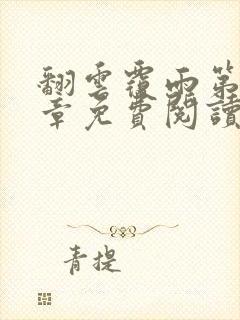 翻雲覆雨第
章免費閱讀
青提